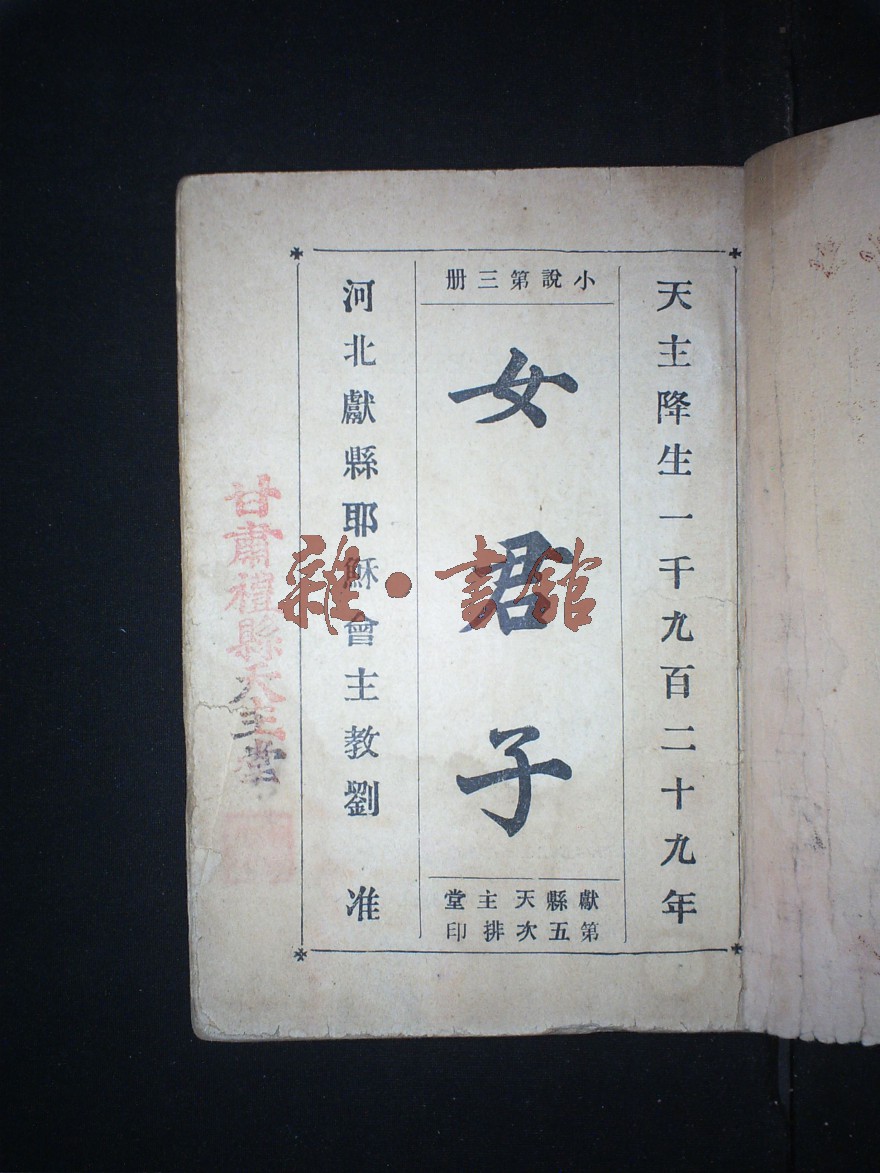 天主降生一千九百二十九年
小說第三册
女君子
獻縣天主堂
第五次排印
河北獻縣耶穌會主教劉 准
甘肅禮縣天主堂
雜·書館